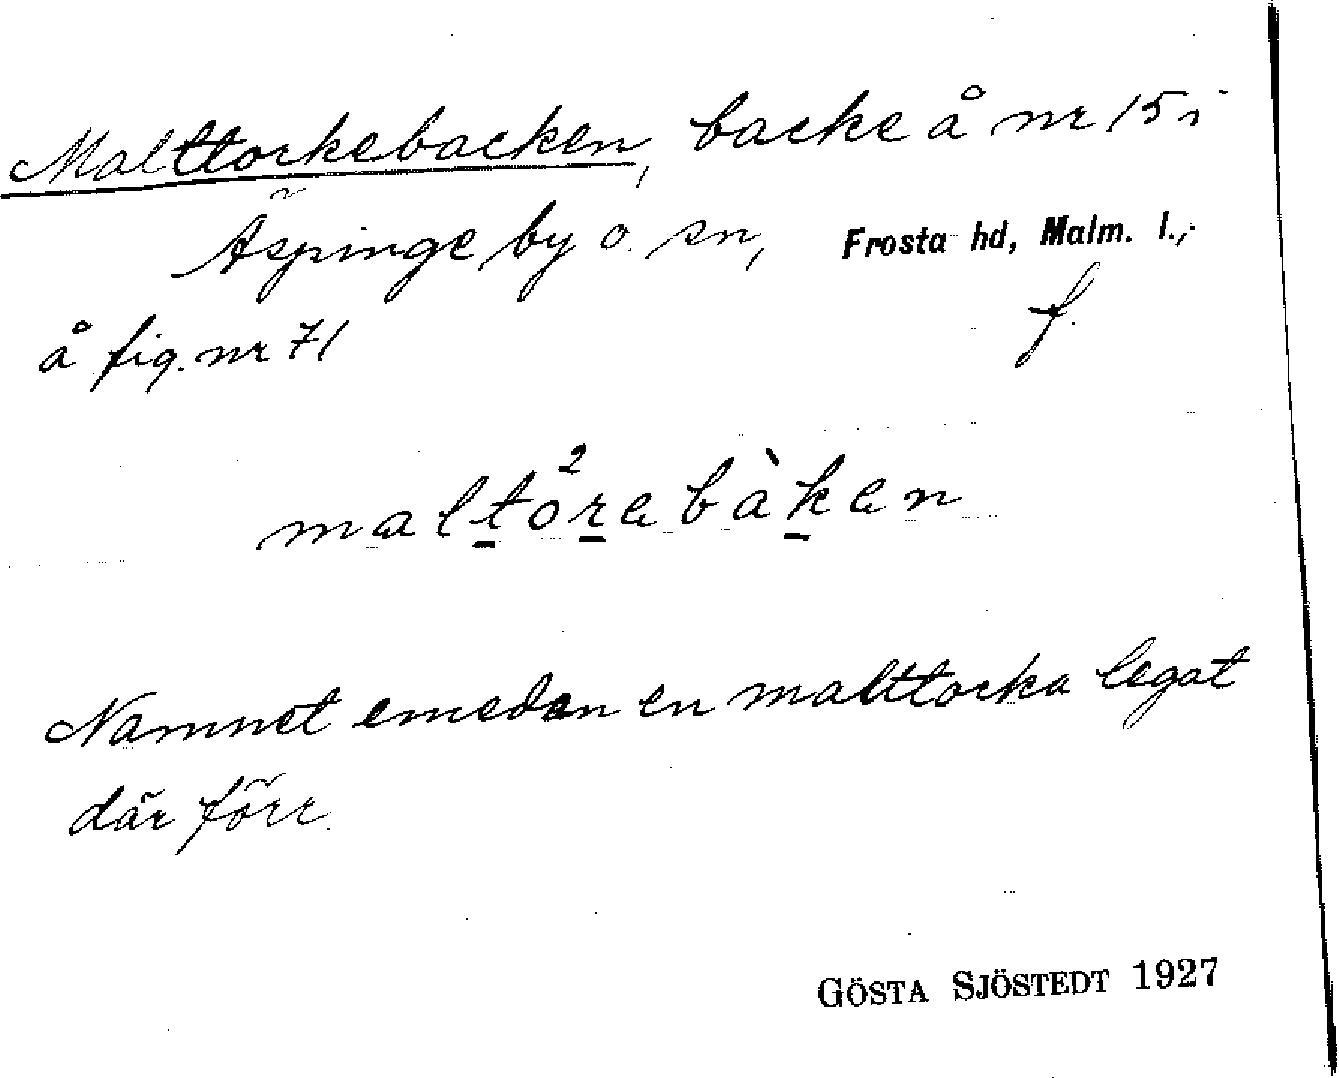 Malttorkebacken, backe å nr 15 i
Äspinge by o. sn, Frosta hd, Malm. l.;
å fig. nr 71 f.
maltòrebàken
Namnet emedan en malttorka legat
där förr.
GÖSTA SJÖSTEDT 1927